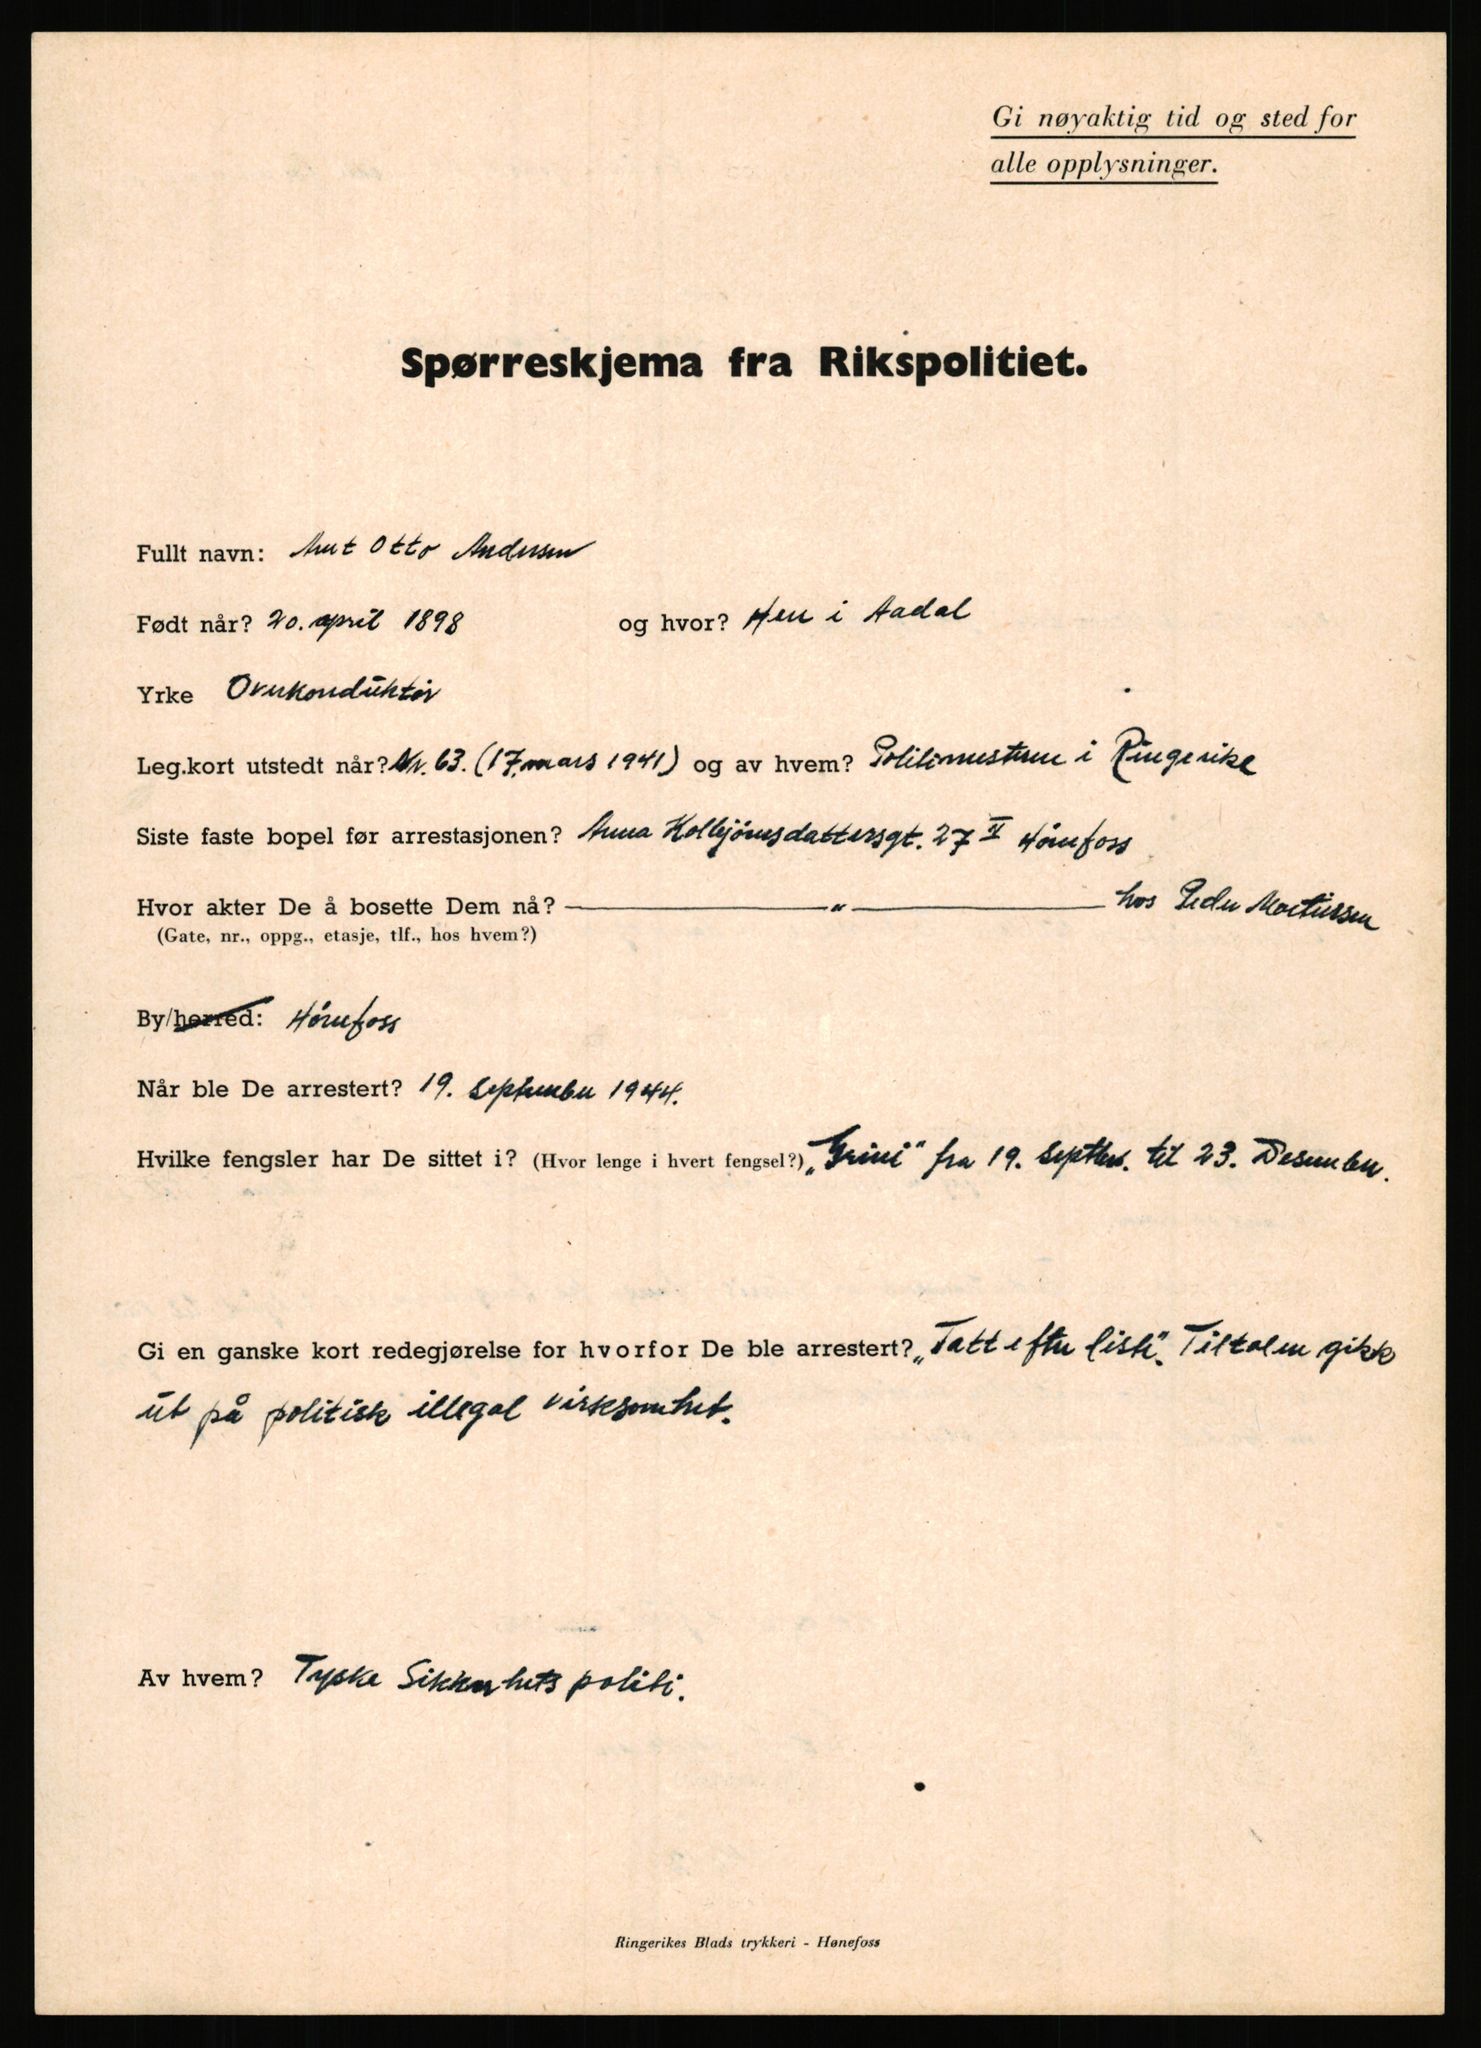 Gi nøyaktig tid og sted for
alle opplysninger.
Spørreskjema fra Rikspolitiet.
Fullt navn: Otto Andersen
Født når? 20. april 1898 og hvor? Hen i Aadal
Yrke Overkonduktør
Leg.kort utstedt når? Nr. 63. (17. mars 1941) og av hvem? Politimesteren i Ringerike
Siste faste bopel før arrestasjonen? Anna Kolbjørnsdattersgt. 27 II Hønefoss
Hvor akter De å bosette Dem nå? — " — hos Peder Mortensen
(Gate, nr., oppg., etasje, tlf., hos hvem?)
By/herred: Hønefoss
Når ble De arrestert? 19. september 1944.
Hvilke fengsler har De sittet i? (Hvor lenge i hvert fengsel?) „Grini" fra 19. septbr. til 23. Desember.
Gi en ganske kort redegjørelse for hvorfor De ble arrestert? „Tatt efter liste". Tiltalen gikk
ut på politisk illegal virksomhet.
Av hvem? Tyske Sikkerhetspoliti.
Ringerikes Blads trykkeri - Hønefoss